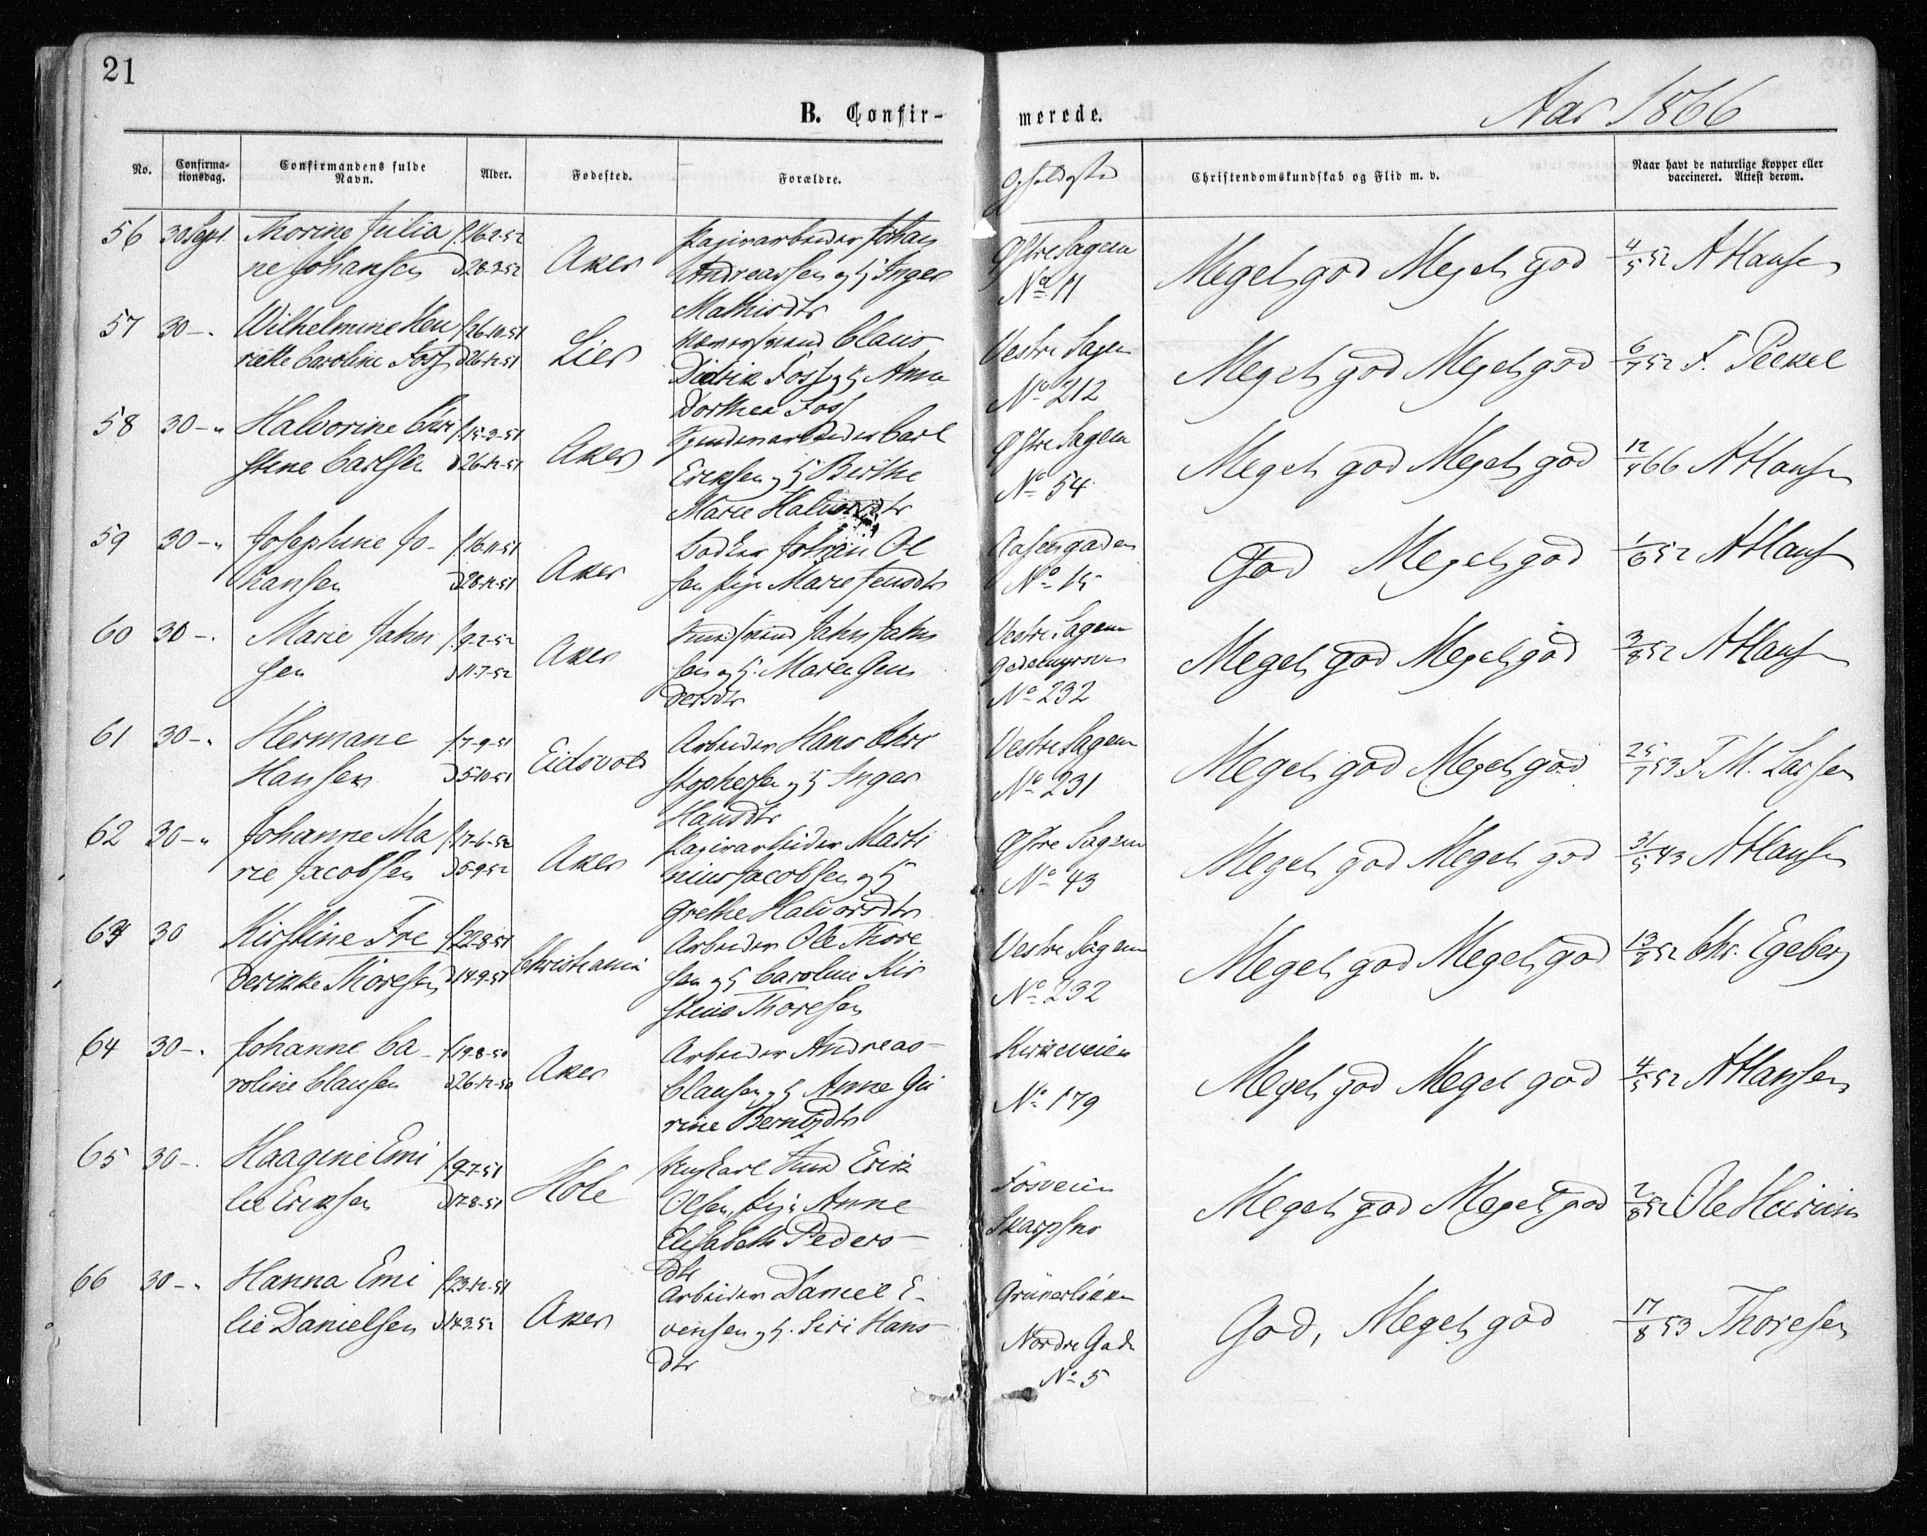 21
B. Confir-
merede.
Aar 1866
No.
Confirma-
tionsdag.
Confirmandens fulde
Navn.
Alder.
Fødested.
Forældre.
Opholdssted
Christendomskundskab og Flid m. v.
Naar havt de naturlige Kopper eller
vaccineret. Attest derom.
56 30 Sept. Thorine Julia f. 16-2-52
ne Johansen D 28-3-52 Aker
Papirarbeider Johan
Andreassen og H Inger
Mathisdtr
Østre Sagene
No 11
Meget god Meget god 4/5 52 A Hansen
57 30 -. Wilhelmine Hen f. 26-10-51
riette Caroline Foss D 26-12-51 Lier
Claus
Didrik Foss og H Anne
Dorthea Foss
Vestre Sagen
No 212
Meget god Meget god 6/7 52 F. Peckel
58 30 -" Halvorine Chri f. 15-9-51
stine Carlsen D 26-12-51 Aker
Carl
Eriksen og H Birthe
Marie Halvorsdtr
Østre Sagen
No 54
Meget god Meget god 12/4 66 A Hansen
59 30 -" Josephine Jo- f. 16-11-51
hansen D 28-12-51 Aker
Johan Ol
sen Pige Marie Jensdtr
Aasengaden
No 15
God Meget god 1/6 52 A Hansen
60 30 -. Marie Jahn f. 9-2-52
sen D 11-7-52 Aker
Jahn Jahn
sen og H. Maren Gun
dersdtr
Vestre Sagene
No 232
Meget god Meget god 3/8 52 A Hansen
61 30 -. Hermane f. 7-9-51
Hansen D 5-10-51 Eidsvold
Arbeider Hans Chri
stophersen og H Inger
Hansdtr
Vestre Sagene
No 231
Meget god Meget god 25/7 53 F. M. Larsen
62 30 -" Johanne Ma f. 17-6-52
rie Jacobsen D 5-9-52 Aker
Papirarbeider Marti
nius Jacobsen og H
Grethe Halvorsdtr
Østre Sagene
No 43
Meget god Meget god 31/5 43 A Hansen
63 30 Kirstine Fre f. 22-8-51
derikke Thoresen D 14-9-51 Christiania
Arbeider Ole Thore
sen og H Caroline Kir
stine Thoresen
Vestre Sagene
No 232
Meget god Meget god 13/7 52 Chr. Egeberg
64 30 -. Johanne Ca- f. 19-8-50
roline Clausen D 26-12-50 Aker
Arbeider Andreas
Clausen og H Anne Gu
rine Berntsdtr
Kirkeveien
No 179
Meget god Meget god 4/5 52 A Hansen
65 30 -. Haagine Emi f. 9-7-51
lie Eriksen D 17-8-51 Hole
Ungkarl Erik
Olsen, Pige Anne
Elisabeth Peders
dtr
Fösveien
Skarpsno
Meget god Meget god 2/8 52 Ole
66 30 -" Hanna Emi f. 23-12-51
lie Danielsen D 14-3-52 Aker
Arbeider Daniel E-
vensen og H. Siri Hans
dtr
Grünerløkken
Nordre Gade
No 5
God, Meget god 17/8 53 Thoresen